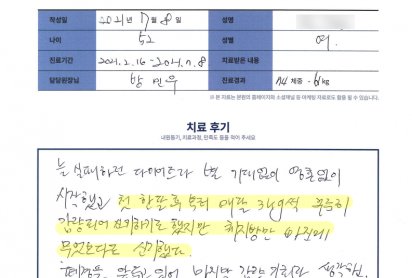 작성일 2021년 7월 8일 성명
나이 52 성별 여.
진료기간 2021.2.16~2021.7.8 치료받은 내용
담당원장님 방민우 진료경과 체중 -6kg
※ 본 자료는 본원의 홈페이지와 소셜채널 등 마케팅 자료로도 활용 될 수 있습니다.
치료 후기
내원동기, 치료과정, 만족도 등을 적어 주세요
늘 실패하던 다이어트라 별 기대없이 영혼없이
시작했고 첫 한달록부터 매달 3kg씩 꾸준히
감량되어 신기하기도 했지만 체지방만 빠진게
무엇보다도 신기했다.
폐경을 앞두고 있어 마지막 감량 기회라 생각하고